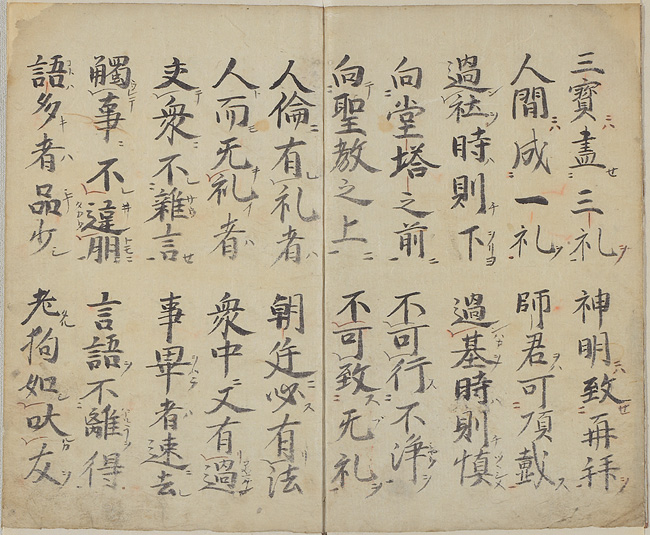 三寶盡三礼 神明致再拝
人間成一礼 師君可項戴
過社時則下 過基時則慎
向堂塔之前 不可行不浄
向聖教之上 不可致无礼
人倫有礼者 朝廷必有法
人而无礼者 衆中又有過
交衆不雜言 事畢者速去
觸事不違朋 言語不離得
語多者品少 老狗如吠友